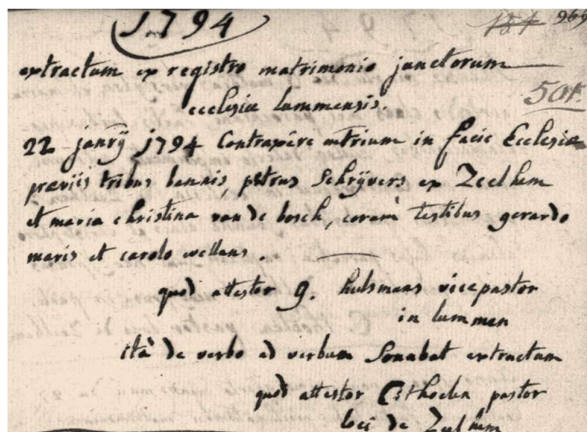 1794
969
extractum ex registro matrimonio junctorum
ecclesiæ lummensis.
501
22 janrÿ 1794 Contraxêre mtrium in facie Ecclesiæ
præviis tribus bannis, petrus Schrÿvers ex Zeelhem
et maria christina van de bosch, coram testibus gerardo
maris et carolo wellens.
quod attestor g. hulsmans vicepastor
in lummen
ità de verbo ad verbum sonabat extractum
quod attestor pastor
loci de Zeelhem